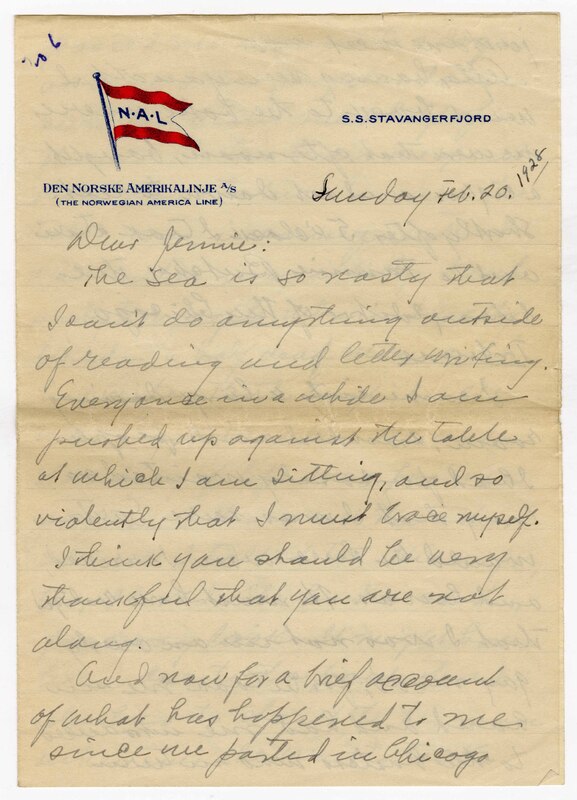 206
N·A·L
S.S. STAVANGERFJORD
DEN NORSKE AMERIKALINJE A/S
(THE NORWEGIAN AMERICA LINE)
Sunday Feb. 20. 1928
Dear Jennie:
The sea is so nasty that
I can't do anything outside
of reading and letter writing.
Everyonce in a while I am
pushed up against the table
at which I am sitting, and so
violently that I must brace myself.
I think you should be very
thankful that you are not
along.
And now for a brief account
of what has happened to me
since we parted in Chicago